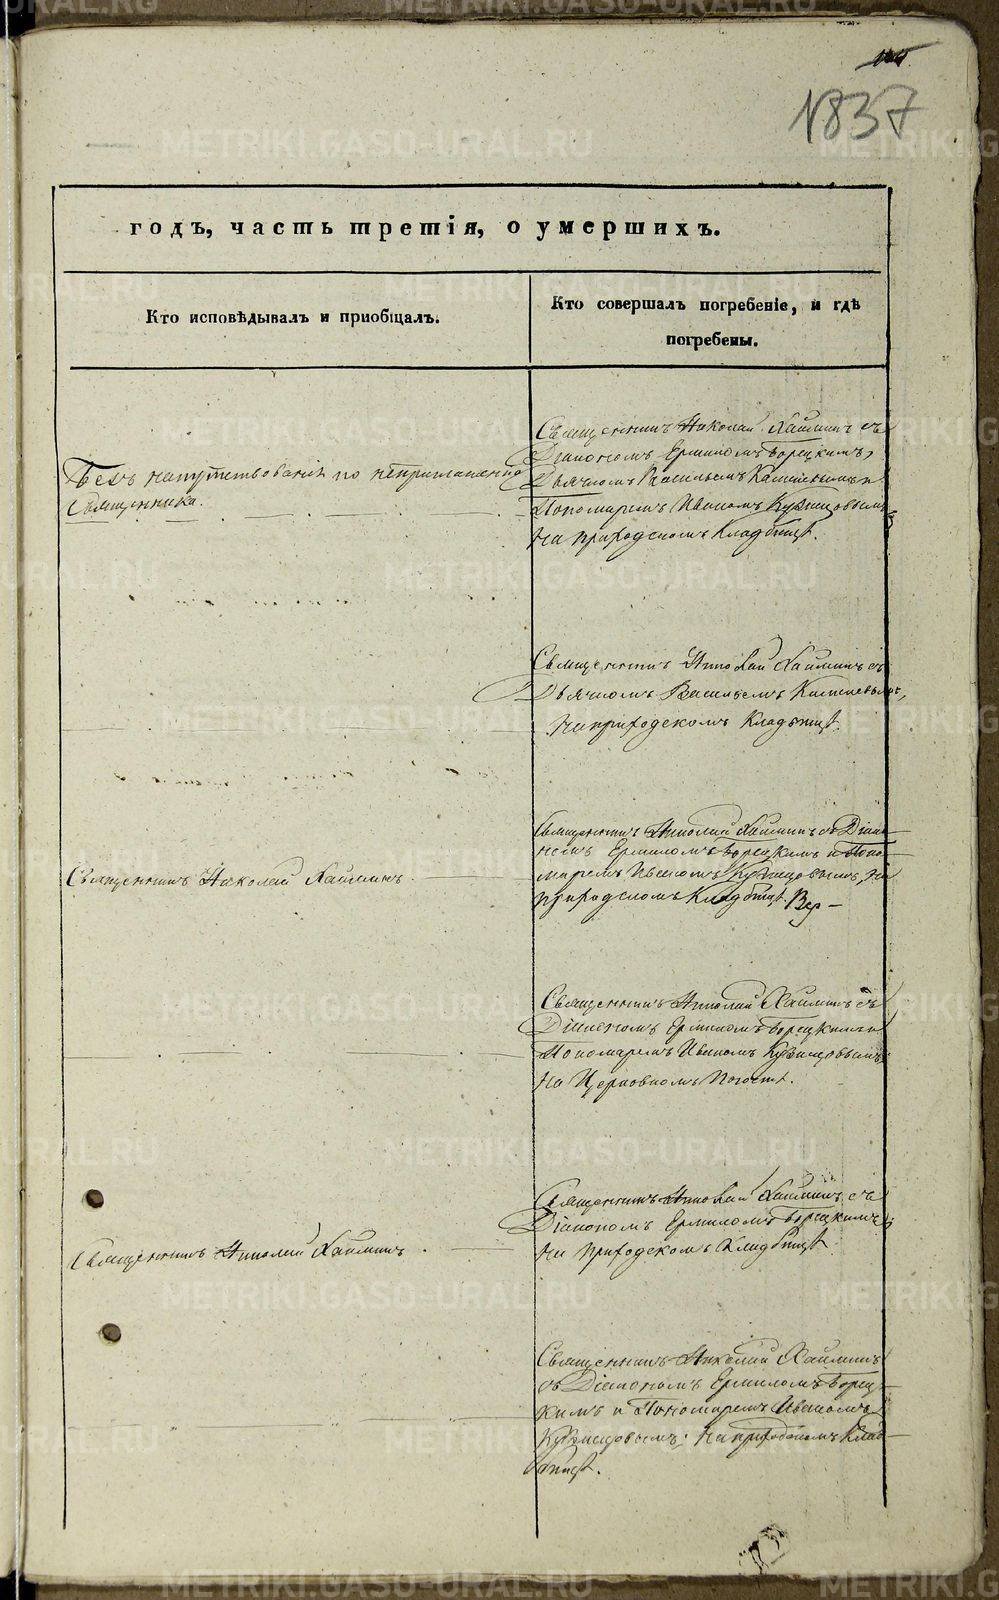 1837
годъ, часть третія, о умершихъ.
Кто исповѣдывалъ и пріобщалъ.
Кто совершалъ погребеніе, и гдѣ
погребены.
Священникъ Николай Хайминъ съ
Діакономъ Ермиломъ Борецкимъ,
Дьячкомъ Васильемъ
Пономаремъ Иваномъ Кузнцовымъ
на приходскомъ Кладбищѣ.
Безъ напутствованія по неприглашенію
Священника.
Священникъ Николай Хайминъ съ
Дьячкомъ Васильемъ
На приходскомъ Кладбищѣ.
Священникъ Николай Хайминъ
Священникъ Николай Хайминъ съ Діако-
номъ Ермиломъ Борецкимъ и Поно-
маремъ Иваномъ Кузнцовымъ, на
приходскомъ Кладбищѣ. Вер-
Священникъ Николай Хайминъ съ
Діакономъ Ермиломъ Борецкимъ и
Пономаремъ Иваномъ Кузнцовымъ
на Церковномъ Погостѣ.
Священникъ Николай Хайминъ
Священникъ Николай Хайминъ съ
Діакономъ Ермиломъ Борецкимъ
на приходскомъ Кладбищѣ
Священникъ Николай Хайминъ
съ Діакономъ Ермиломъ Борец-
кимъ и Пономаремъ Иваномъ
Кузнцовымъ; на приходскомъ Клад-
бищѣ.
METRIKI.GASO-URAL.RU